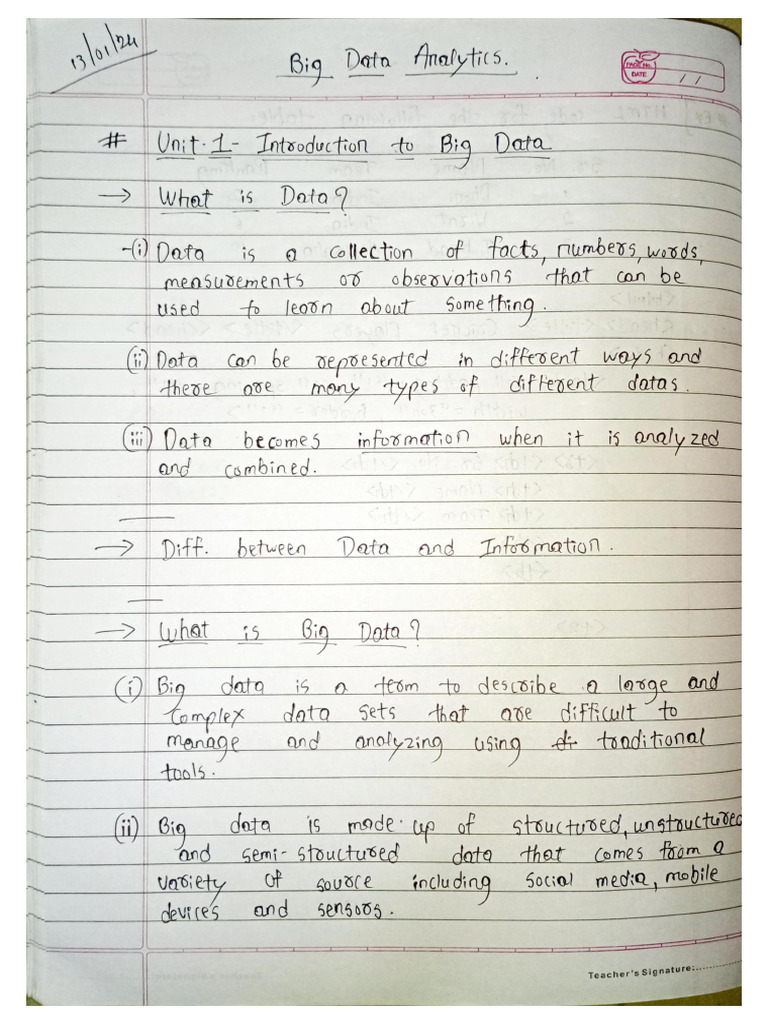 13/01/24
Big Data Analytics.
PAGE No.
DATE
/ /
# Unit-1- Introduction to Big Data
→ What is Data?
-(i) Data is a collection of facts, numbers, words,
measurements or observations that can be
used to learn about something.
(ii) Data can be represented in different ways and
there are many types of different datas.
(iii) Data becomes information when it is analyzed
and combined.
→ Diff. between Data and Information.
→ What is Big Data?
(i) Big data is a term to describe a large and
complex data sets that are difficult to
manage and analyzing using di traditional
tools.
(ii) Big data is made-up of structured, unstructured
and semi-structured data that comes from a
variety of source including social media, mobile
devices and sensors.
Teacher's Signature:..............